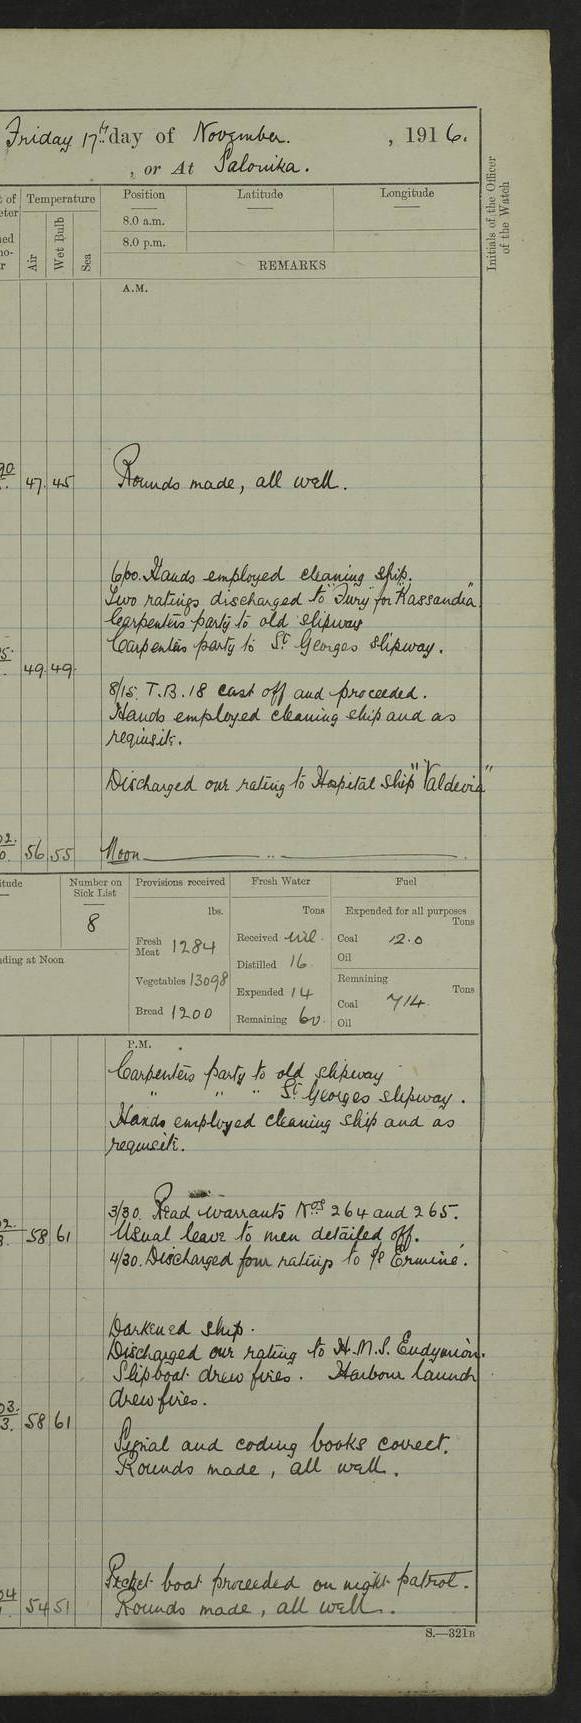 Friday 17th day of November. , 1916.
, or At Salonika.
t of
Temperature
Position
Latitude
Longitude
Initials of the Officer
of the Watch
eter
ned
no-
r
Air
Wet Bulb
Sea
8.0 a.m.
8.0 p.m.
REMARKS
A.M.
90
47. 45 Rounds made, all well.
6/00. Hands employed cleaning ship.
Two ratings discharged to "Fury" for "Kassandia"
Carpenters party to old slipway
Carpenters party to St Georges slipway.
5.
49. 49.
8/15. T.B. 18 cast off and proceeded.
Hands employed cleaning ship and as
requisite.
Discharged one rating to Hospital ship "Valdevia"
02.
0. 56 55 Noon
itude
Number on
Sick List
8
Provisions received
Fresh Water
Fuel
lbs.
Tons
Expended for all purposes
Tons
Fresh
Meat 1284
Received nil.
Coal 12.0
Oil
Distilled 16
nding at Noon
Vegetables 13098
Remaining
Tons
Expended 14
Coal 714.
Bread 1200
Remaining 60.
Oil
P.M.
Carpenters party to old slipway
" " " St Georges slipway.
Hands employed cleaning ship and as
requisite.
3/30. Read Warrants Nos 264 and 265.
02.
3. 58 61 Usual leave to men detailed off.
4/30. Discharged four ratings to S/S 'Ermine'.
Darkened ship.
Discharged one rating to H.M.S. Endymion.
Slipboat drew fires. Harbour launch
drew fires.
03.
3. 58 61
Signal and coding books correct.
Rounds made, all well.
Picket boat proceeded on night patrol.
04
54 51 Rounds made, all well.
S.—321B